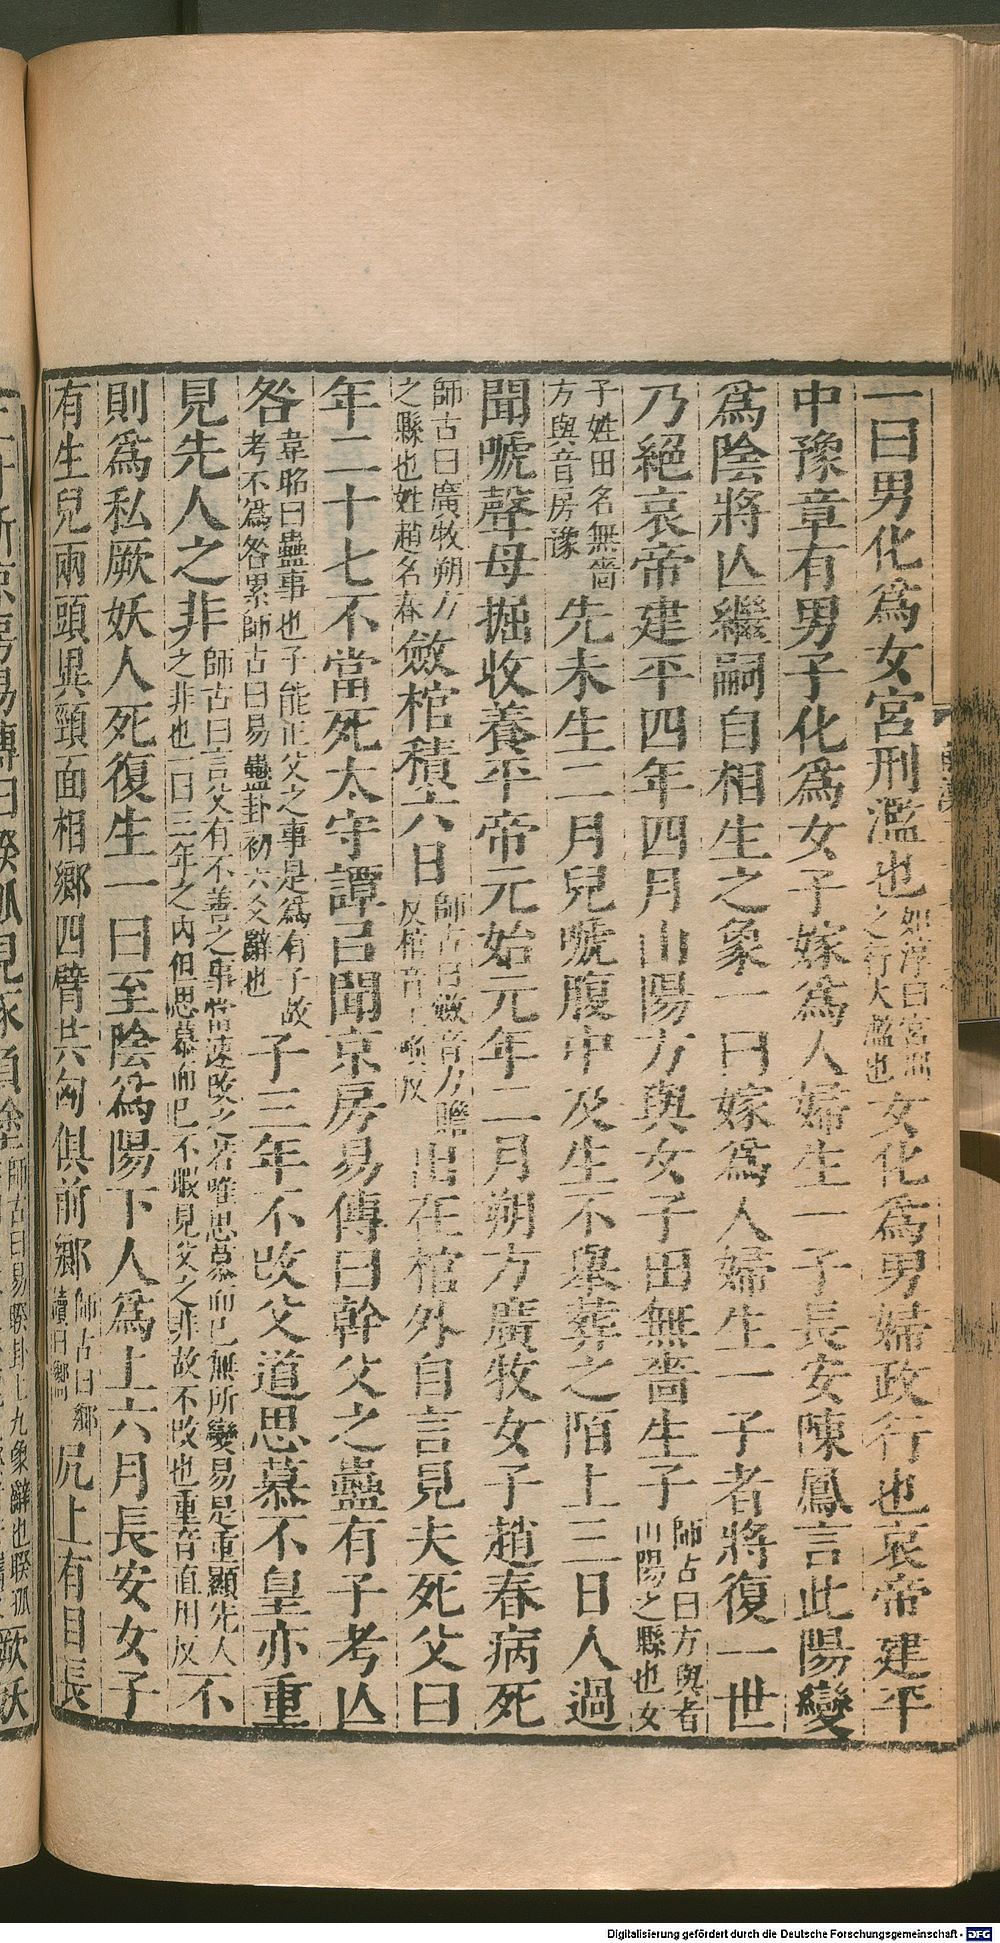 一曰男化爲女宮刑濫也如淳曰宮刑之行大濫也女化爲男婦政行也哀帝建平
中豫章有男子化爲女子嫁爲人婦生一子長安陳鳳言此陽變
爲陰將亾繼嗣自相生之象一曰嫁爲人婦生一子者將復一世
乃絕哀帝建平四年四月山陽方與女子田無嗇生子師古曰方與者山陽之縣也女
子姓田名無嗇方與音房豫先未生二月兒嗁腹中及生不舉葬之陌上三日人過
聞嗁聲母掘收養平帝元始元年二月朔方廣牧女子趙春病死
師古曰廣牧朔方之縣也姓趙名春斂棺積六日師古曰斂音力贍反棺音工喚反出在棺外自言見夫死父曰
年二十七不當死太守譚㠯聞京房易傳曰幹父之蠱有子考亾
咎韋昭曰蠱事也子能正父之事是爲有子故考不爲咎累師古曰易蠱卦初六爻辭也子三年不改父道思慕不皇亦重
見先人之非師古曰言父有不善之事當速改之若唯思慕而已無所變易是重顯先人之非也一曰三年之內但思慕而已不暇見父之非故不改也重音直用反不
則爲私厥妖人死復生一曰至陰爲陽下人爲上六月長安女子
有生兒兩頭異頸面相鄉四臂共匈俱前鄉師古曰鄉讀曰嚮尻上有目長
師古曰易睽卦上九象辭也睽孤
厥妖
Digitalisierung gefördert durch die Deutsche Forschungsgemeinschaft - DFG